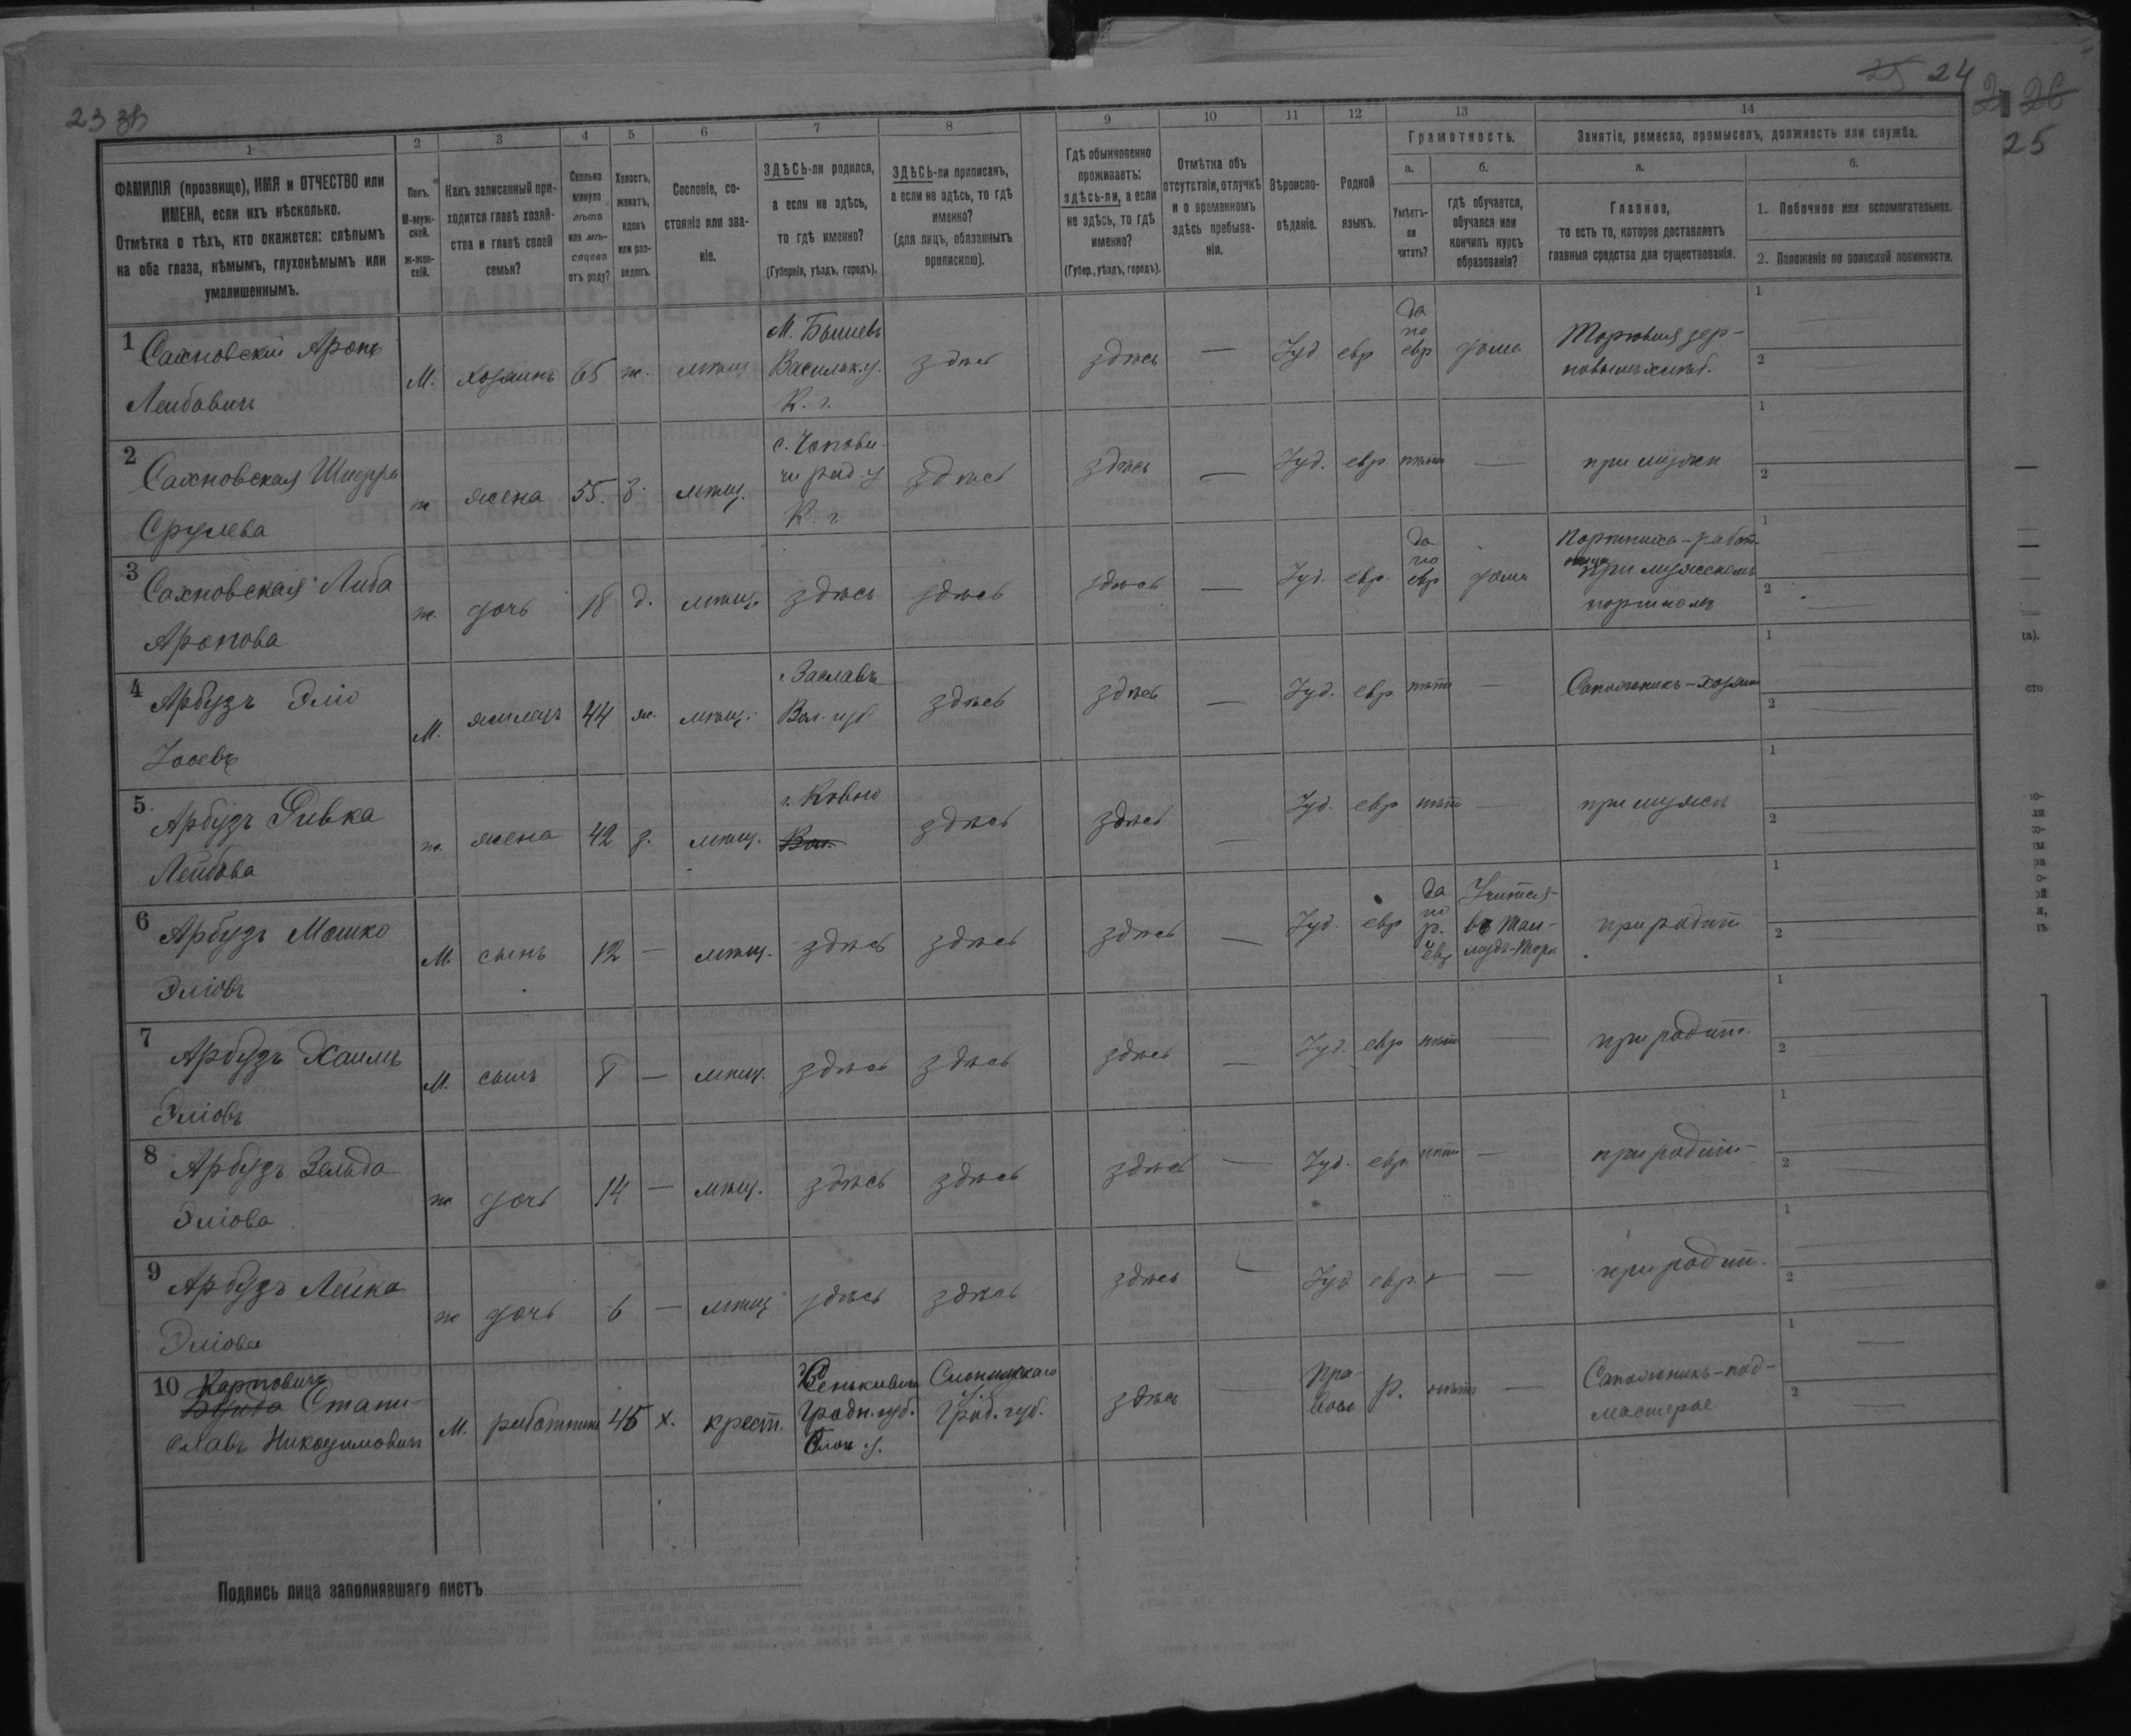 23 38
25 24
2 26
25
1
2
3
4
5
6
7
8
9
10
11
12
13
14
ФАМИЛІЯ (прозвище), ИМЯ и ОТЧЕСТВО или
ИМЕНА, если ихъ нѣсколько.
Отмѣтка о тѣхъ, кто окажется: слѣпымъ
на оба глаза, нѣмымъ, глухонѣмымъ или
умалишеннымъ.
Полъ.
М-муж-
ской.
Ж-жен-
скій.
Какъ записанный при-
ходится главѣ хозяй-
ства и главѣ своей
семьи?
Сколько
минуло
лѣтъ
или мѣ-
сяцевъ
отъ роду?
Холостъ,
женатъ,
вдовъ
или раз-
веденъ.
Сословіе, со-
стояніе или зва-
ніе.
ЗДѢСЬ-ли родился,
а если не здѣсь,
то гдѣ именно?
(Губернія, уѣздъ, городъ).
ЗДѢСЬ-ли приписанъ,
а если не здѣсь, то гдѣ
именно?
(для лицъ, обязанныхъ
припискою).
Гдѣ обыкновенно
проживаетъ:
здѣсь-ли, а если
не здѣсь, то гдѣ
именно?
(Губер., уѣздъ, городъ).
Отмѣтка объ
отсутствіи, отлучкѣ
и о временномъ
здѣсь пребыва-
ніи.
Вѣроиспо-
вѣданіе.
Родной
языкъ.
Грамотность.
а.
Умѣетъ-
ли
читать?
б.
гдѣ обучается,
обучался или
кончилъ курсъ
образованія?
Занятіе, ремесло, промыселъ, должность или служба.
а.
Главное,
то есть то, которое доставляетъ
главныя средства для существованія.
б.
1. Побочное или вспомогательное.
2. Положеніе по воинской повинности.
1 Сахновскій Аронъ
Лейбовичъ
М. хозяинъ 65 ж. мѣщ.
М. Бышевъ
Васильк. у.
К. г.
здѣсь здѣсь — Іуд. евр
да
по
евр
дома
Торговля зер-
новымъ хлѣб.
1
2
2 Сахновская
Срулева
ж жена 55. з. мѣщ.
с. Чопови-
чи рад. у
К. г
здѣсь здѣсь — Іуд. евр. нѣтъ — при мужѣ
1
2
3 Сахновская Либа
Аронова
ж. дочь 18 д. мѣщ. здѣсь здѣсь здѣсь — Іуд. евр.
да
по
евр
дома
Портниха-работ-
ница
при мужскомъ
портномъ
1
2
4 Арбузъ Эліо
М. жилецъ 44 ж. мѣщ.
г. Заславъ
Вол. губ
здѣсь здѣсь — Іуд. евр нѣтъ — Сапожникъ-хозяинъ
1
2
5. Арбузъ Ривка
Лейбова
ж. жена 42 з. мѣщ.
г. Ковно
Вол.
здѣсь здѣсь — Іуд. евр нѣтъ — при мужѣ
1
2
6 Арбузъ Мошко
Эліовъ
М. сынъ 12 — мѣщ. здѣсь здѣсь здѣсь — Іуд. евр
да
по
р.
и
евр
Учится
въ Тал-
мудъ-Тора
при родит
1
2
7 Арбузъ Хаимъ
Эліовъ
М. сынъ 8 — мѣщ. здѣсь здѣсь здѣсь — Іуд. евр нѣтъ — при родит.
1
2
8 Арбузъ Зельда
Эліова
ж дочь 14 — мѣщ. здѣсь здѣсь здѣсь — Іуд. евр. нѣтъ — при родит
1
2
9 Арбузъ Лейка
Эліова
ж дочь 6 — мѣщ здѣсь здѣсь здѣсь — Іуд евр. — при родит.
1
2
10 Карповичъ
Стани-
славъ Никодимовичъ
М. работникъ 45 х. крест.
Гродн. губ.
Слон. у.
Слонимскаго
у.
Грод. губ.
здѣсь —
Пра-
восл
р. нѣтъ —
Сапожникъ-под-
мастерье
1
2
Подпись лица заполнявшаго листъ